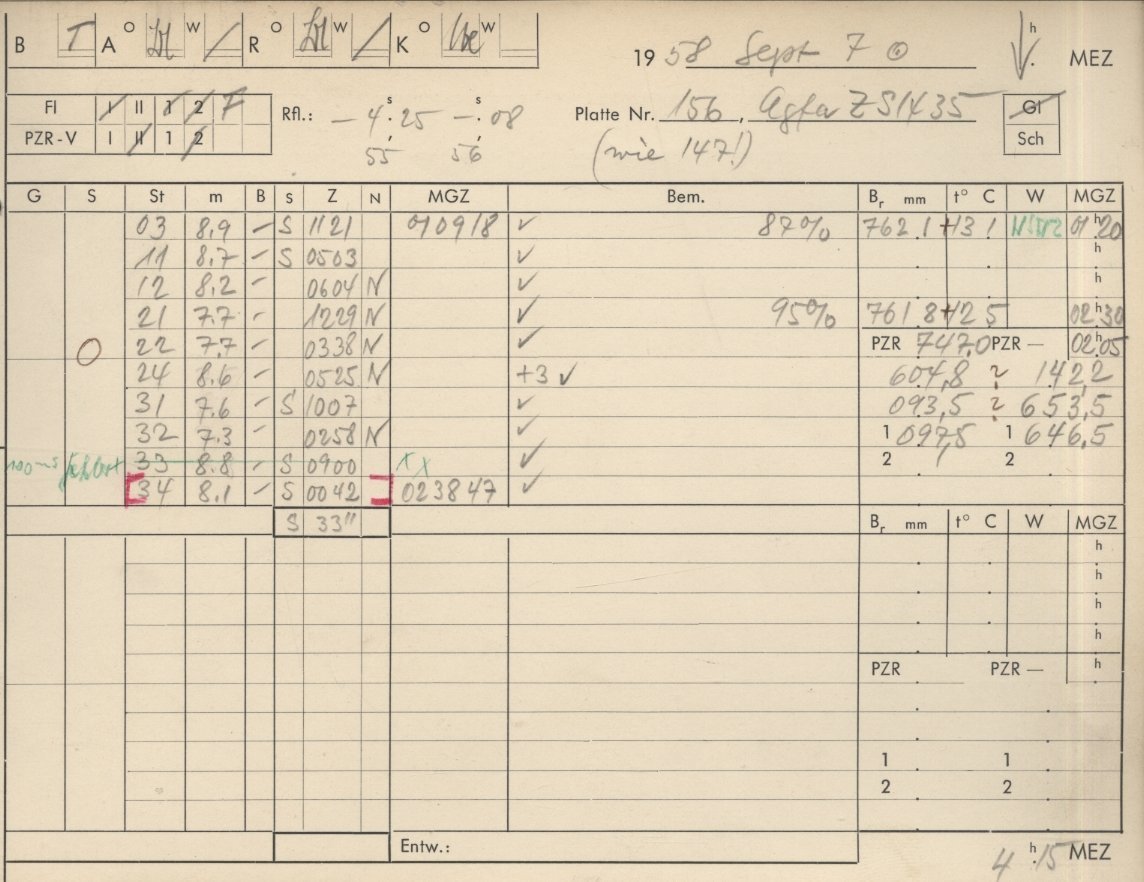 B T A O W / R O W / K O W
19 58 Sept 7 ⊙ h . MEZ
FI I II 1 2 7 Rfl.: – 4.s25 – .s08 Platte Nr. 156, Agfa ZS1435 Gl
PZR-V I II 1 2 55 56 (wie 147!) Sch
G S St m B S Z N MGZ Bem. Br mm t° C W MGZ
03 8.9 – S 1121 010918 ✓ 87% 762.1 +13 1 01h20
11 8.7 – S 0503 ✓ h
12 8.2 – 0604 N ✓ h
21 7.7 – 1229 N ✓ 95% 761.8 +12 5 02h30
22 7.7 – 0338 N ✓ PZR 747.0 PZR – 02h05
O
24 8.6 – 0525 N +3 ✓ 604,8 ? 142,2
31 7.6 – S 1007 ✓ 093,5 ? 653,5
32 7.3 – 0258 N ✓ 1 097,5 1 646,5
33 8.8 – S 0900 x x ✓ 2 2
[34 8.1 – S 0042 ] 023847 ✓
S 33"
Br mm t° C W MGZ
h
h
h
h
PZR PZR – h
1 1
2 2
Entw.: 4h.15 MEZ